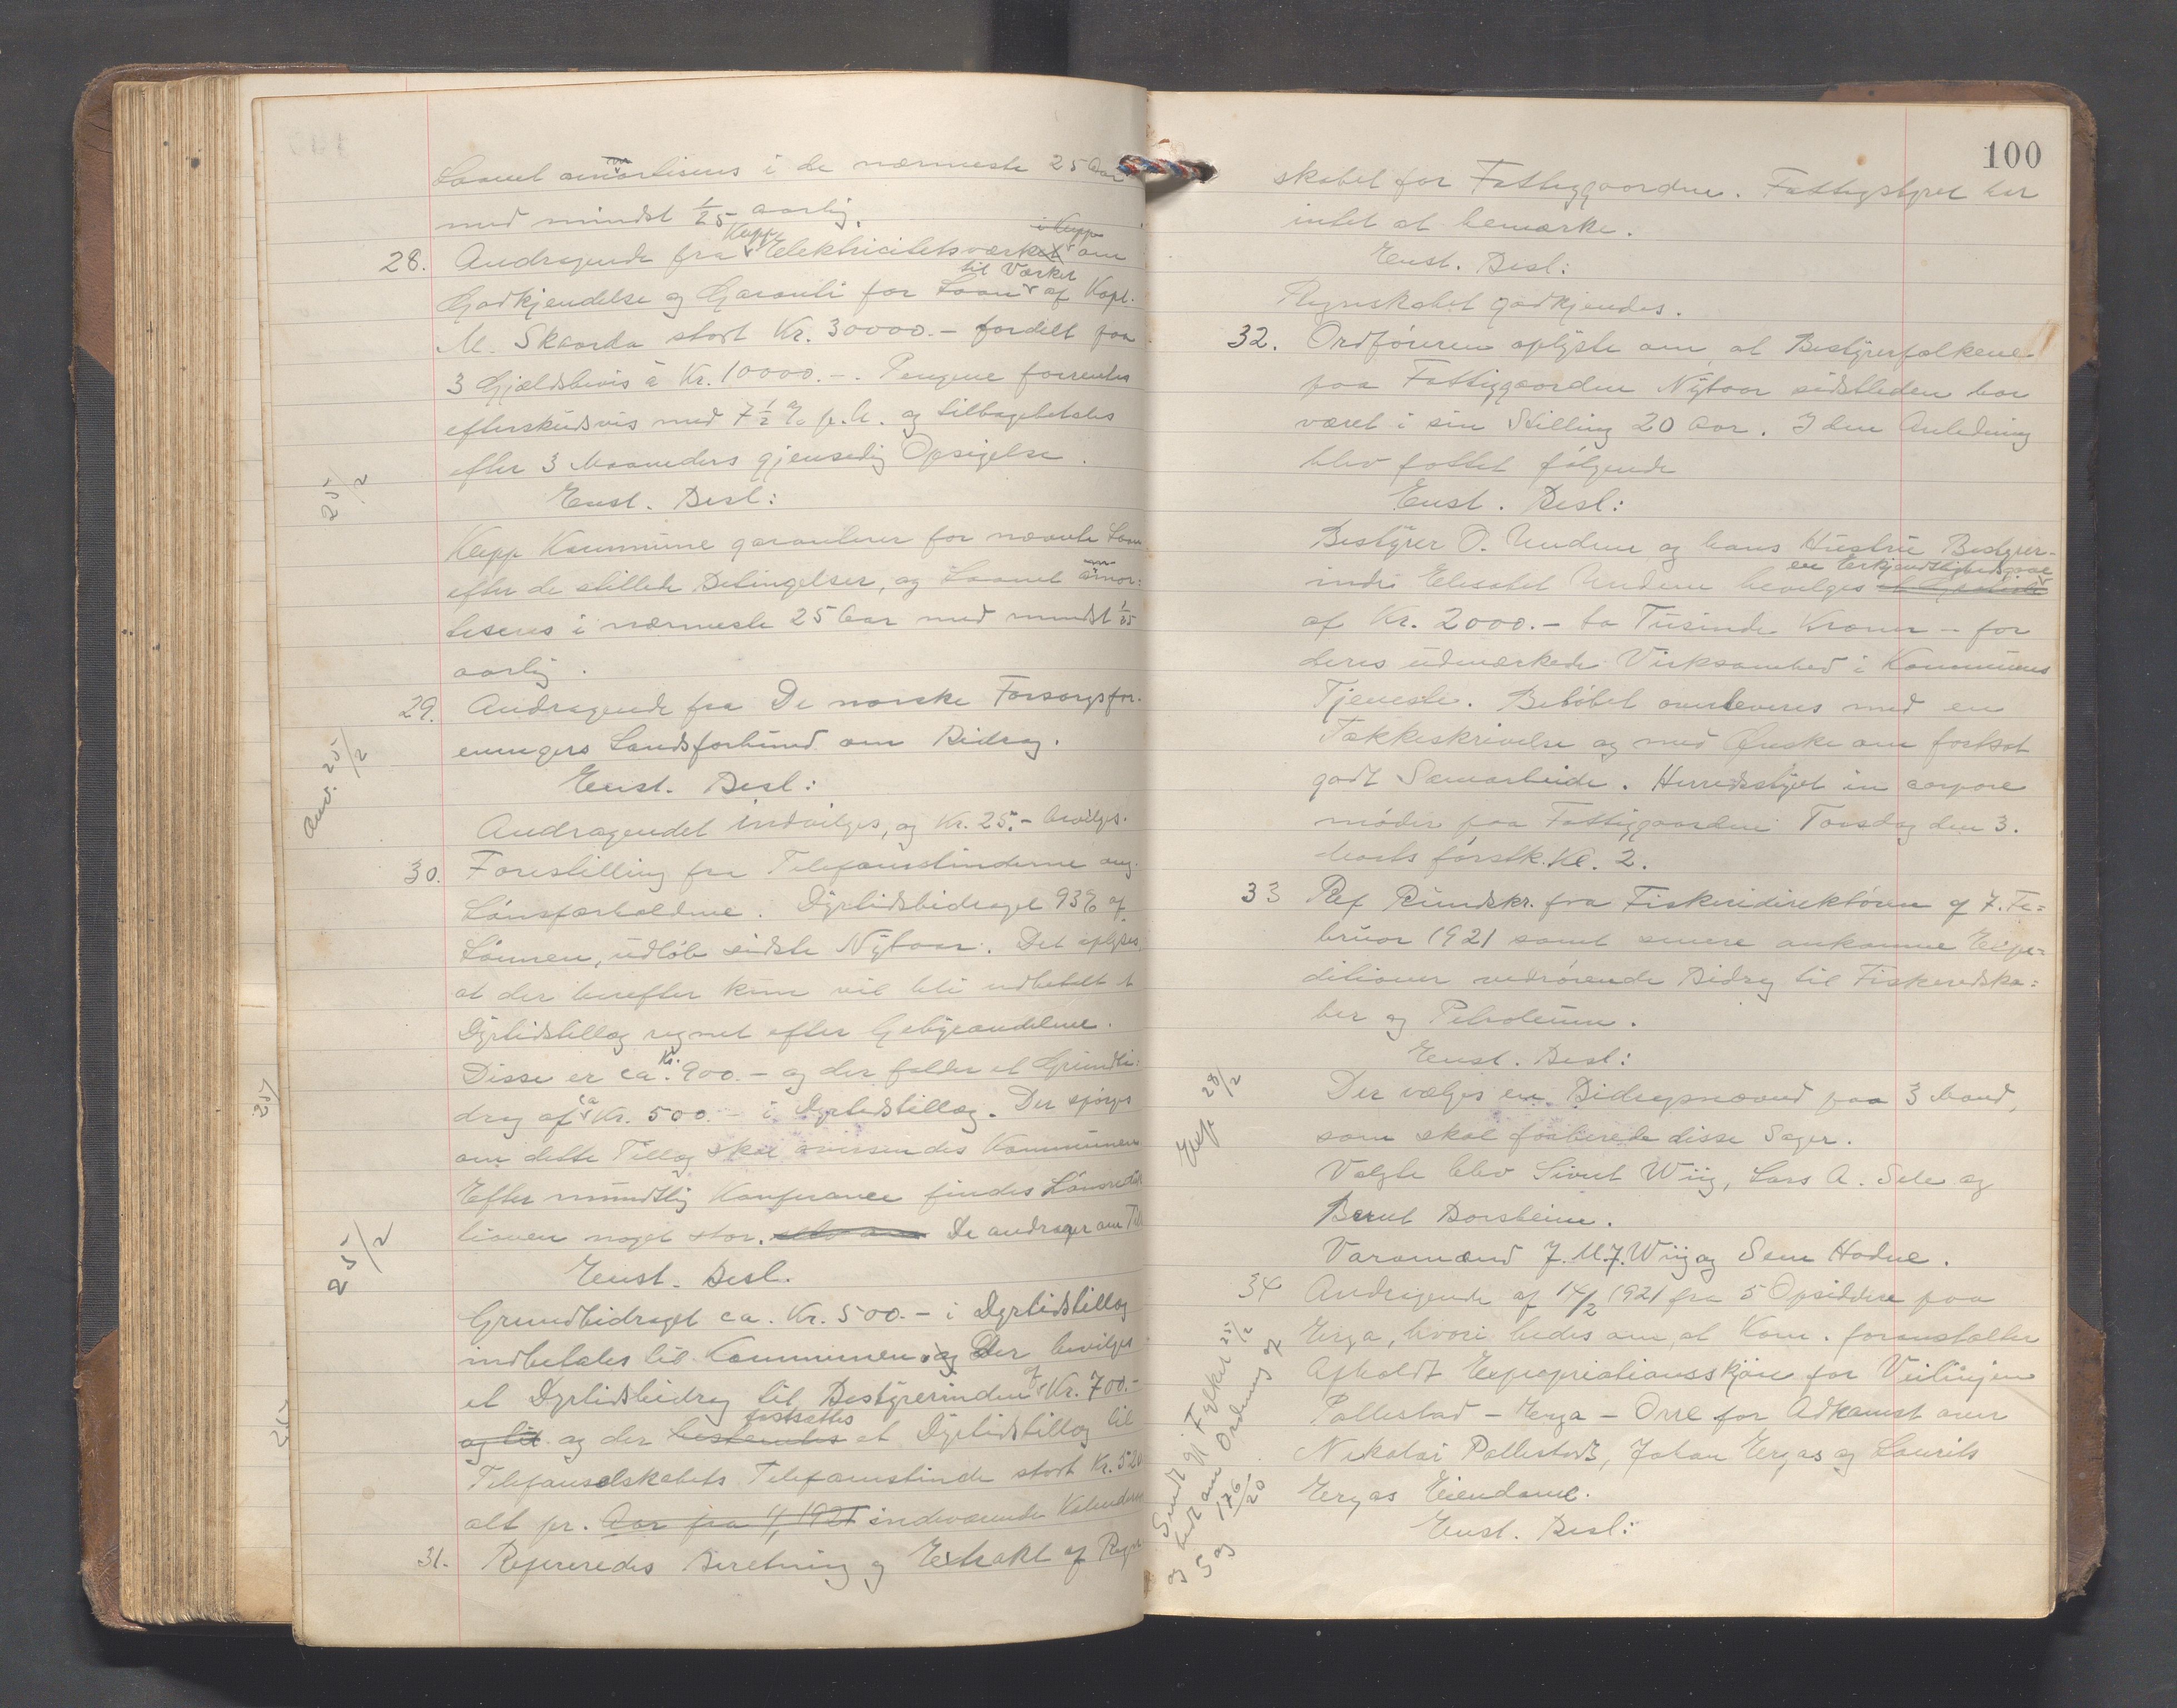 Laanet amortiseres i de nærmeste 25 Aar
med mindst 1/25 aarlig.
28. Andragende fra Klepp Elektricitetsværk i Klepp om
Godkjendelse og Garanti for Laan til Værket af Kapt.
M. Skaarda stort Kr. 30000.- fordelt paa
3 Gjældsbevis à Kr. 10000.-. Pengene forrentes
efterskudsvis med 7 1/2 % p.A. og tilbagebetales
efter 3 Maaneders gjensidig Opsigelse.
25/2
Enst. Besl:
Klepp Kommune garanterer for nævnte Laan
efter de stillede Betingelser, og Laanet amor-
tiseres i nærmeste 25 Aar med mindst 1/25
aarlig.
29. Andragende fra De norske Forsorgsfor-
eningers Landsforbund om Bidrag.
Anv. 25/2
Enst. Besl:
Andragendet indvilges, og Kr. 25.- bevilges.
30. Forestilling fra Telefonistinderne ang.
Lønsforholdene. Dyrtidsbidraget 93% af
Lønnen, udløb sidste Nytaar. Det oplyses,
at der herefter kun vil bli udbetalt et
Dyrtidstillæg regnet efter Gebyrandelene.
Disse er ca. Kr. 900.- og der falder et Grundbi-
drag af ca Kr. 500.- i Dyrtidstillæg. Der spørges
om dette Tillæg skal avissendes Kommunen
Efter mundtlig Konferance findes Lønsreduk
tionen noget stor. De andrager om Till
25/2
Enst. Besl.
Grundbidraget ca. Kr. 500.- i Dyrtidstillæg
indbetales til Kommunen, og Der bevilges
et Dyrtidsbidrag til Bestyrerinden af Kr. 700.-
og til og der bestemtes fastsættes et Dyrtidstillæg til
Telefonselskabets Telefonistinde stort Kr. 520
alt pr. Aar fra 1/1 1921 indeværende Kalender
31. Refereredes Beretning og Extrakt af Regn
100
skabet for Fattiggaarden. Fattigstyret har
intet at bemærke.
Enst. Besl:
Regnskabet godkjendes.
32. Ordføreren oplyste om, at Bestyrerfolkene
paa Fattiggaarden Nytaar sidstleden har
været i sin Stilling 20 Aar. I den Anledning
blev fattet følgende
Enst. Besl:
Bestyrer O. Undem og hans Hustru Bestyrer-
inde Elisabet Undem bevilges en Erkjendtlighedsgave
af Kr. 2000.- to Tusinde Kroner - for
deres udmærkede Virksomhed i Kommunens
Tjeneste. Beløbet overleveres med en
Takkeskrivelse og med Ønske om fortsat
godt Samarbeide. Herredsstyret in corpore
møder paa Fattiggaarden Torsdag den 3.
Marts førstk. Kl. 2.
33 Ref Rundskr. fra Fiskeridirektøren af 7. Fe=
bruar 1921 samt senere ankomne Expe=
ditioner vedrørende Bidrag til Fiskeredska=
ber og Petroleum.
Enst. Besl:
Exp 28/2
Der vælges en Bidragsnævnd paa 3 Mand,
som skal forberede disse Sager.
Valgte blev Sivert Wiig, Lars A. Sele og
Bernt Borsheim.
Varamænd J. M. J. Wiig og Sem Hodne.
34 Andragende af 14/2 1921 fra 5 Opsiddere paa
Erga, hvori bedes om, at Kom. foranstalter
Afholdt Expropriationsskjøn for Veilinjen
Pollestad - Erga - Orre for Adkomst over
Nikolai Pollestads, Johan Ergas og Laurits
Ergas Eiendome.
Enst. Besl:
Sendt gj Fylket 25/2
og bedt om Ordning af
S og 176/20